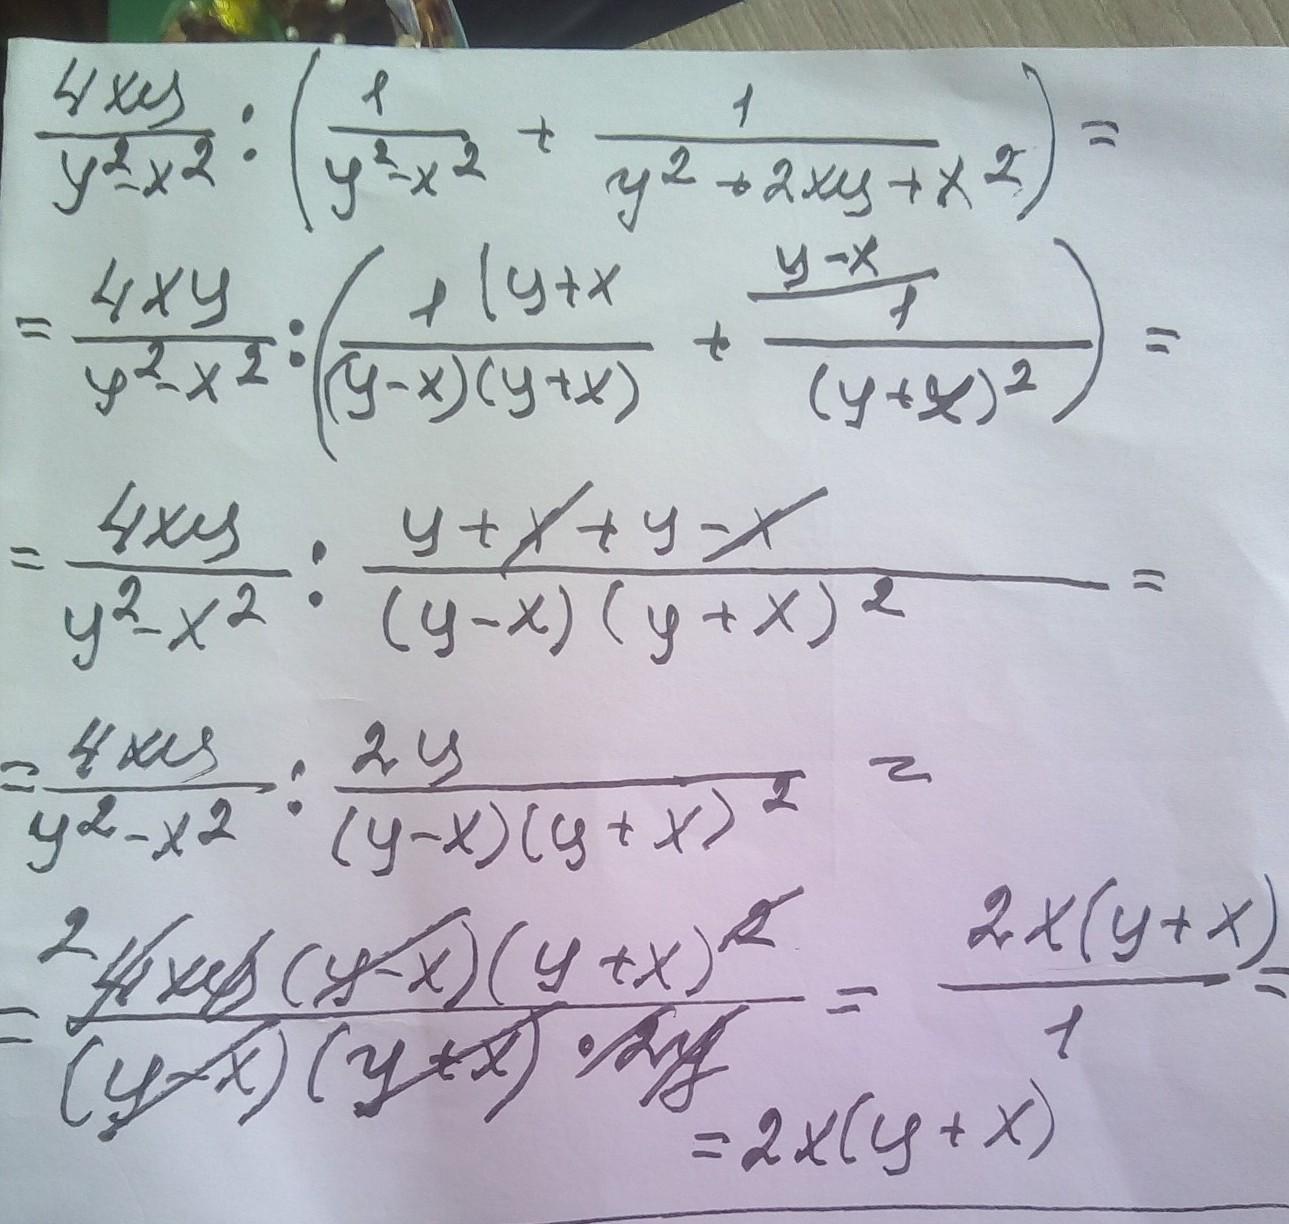 4xy/(y²-x²) : (1/(y²-x²) + 1/(y²+2xy+x²)) =
= 4xy/(y²-x²) : (1 (y+x/((y-x)(y+x)) + y-x 1/(y+x)²) =
= 4xy/(y²-x²) : (y+x+y-x)/((y-x)(y+x)²) =
= 4xy/(y²-x²) : 2y/((y-x)(y+x)²) =
= 2 4xy(y-x)(y+x)²/((y-x)(y+x)·2y) = 2x(y+x)/1 =
= 2x(y+x)